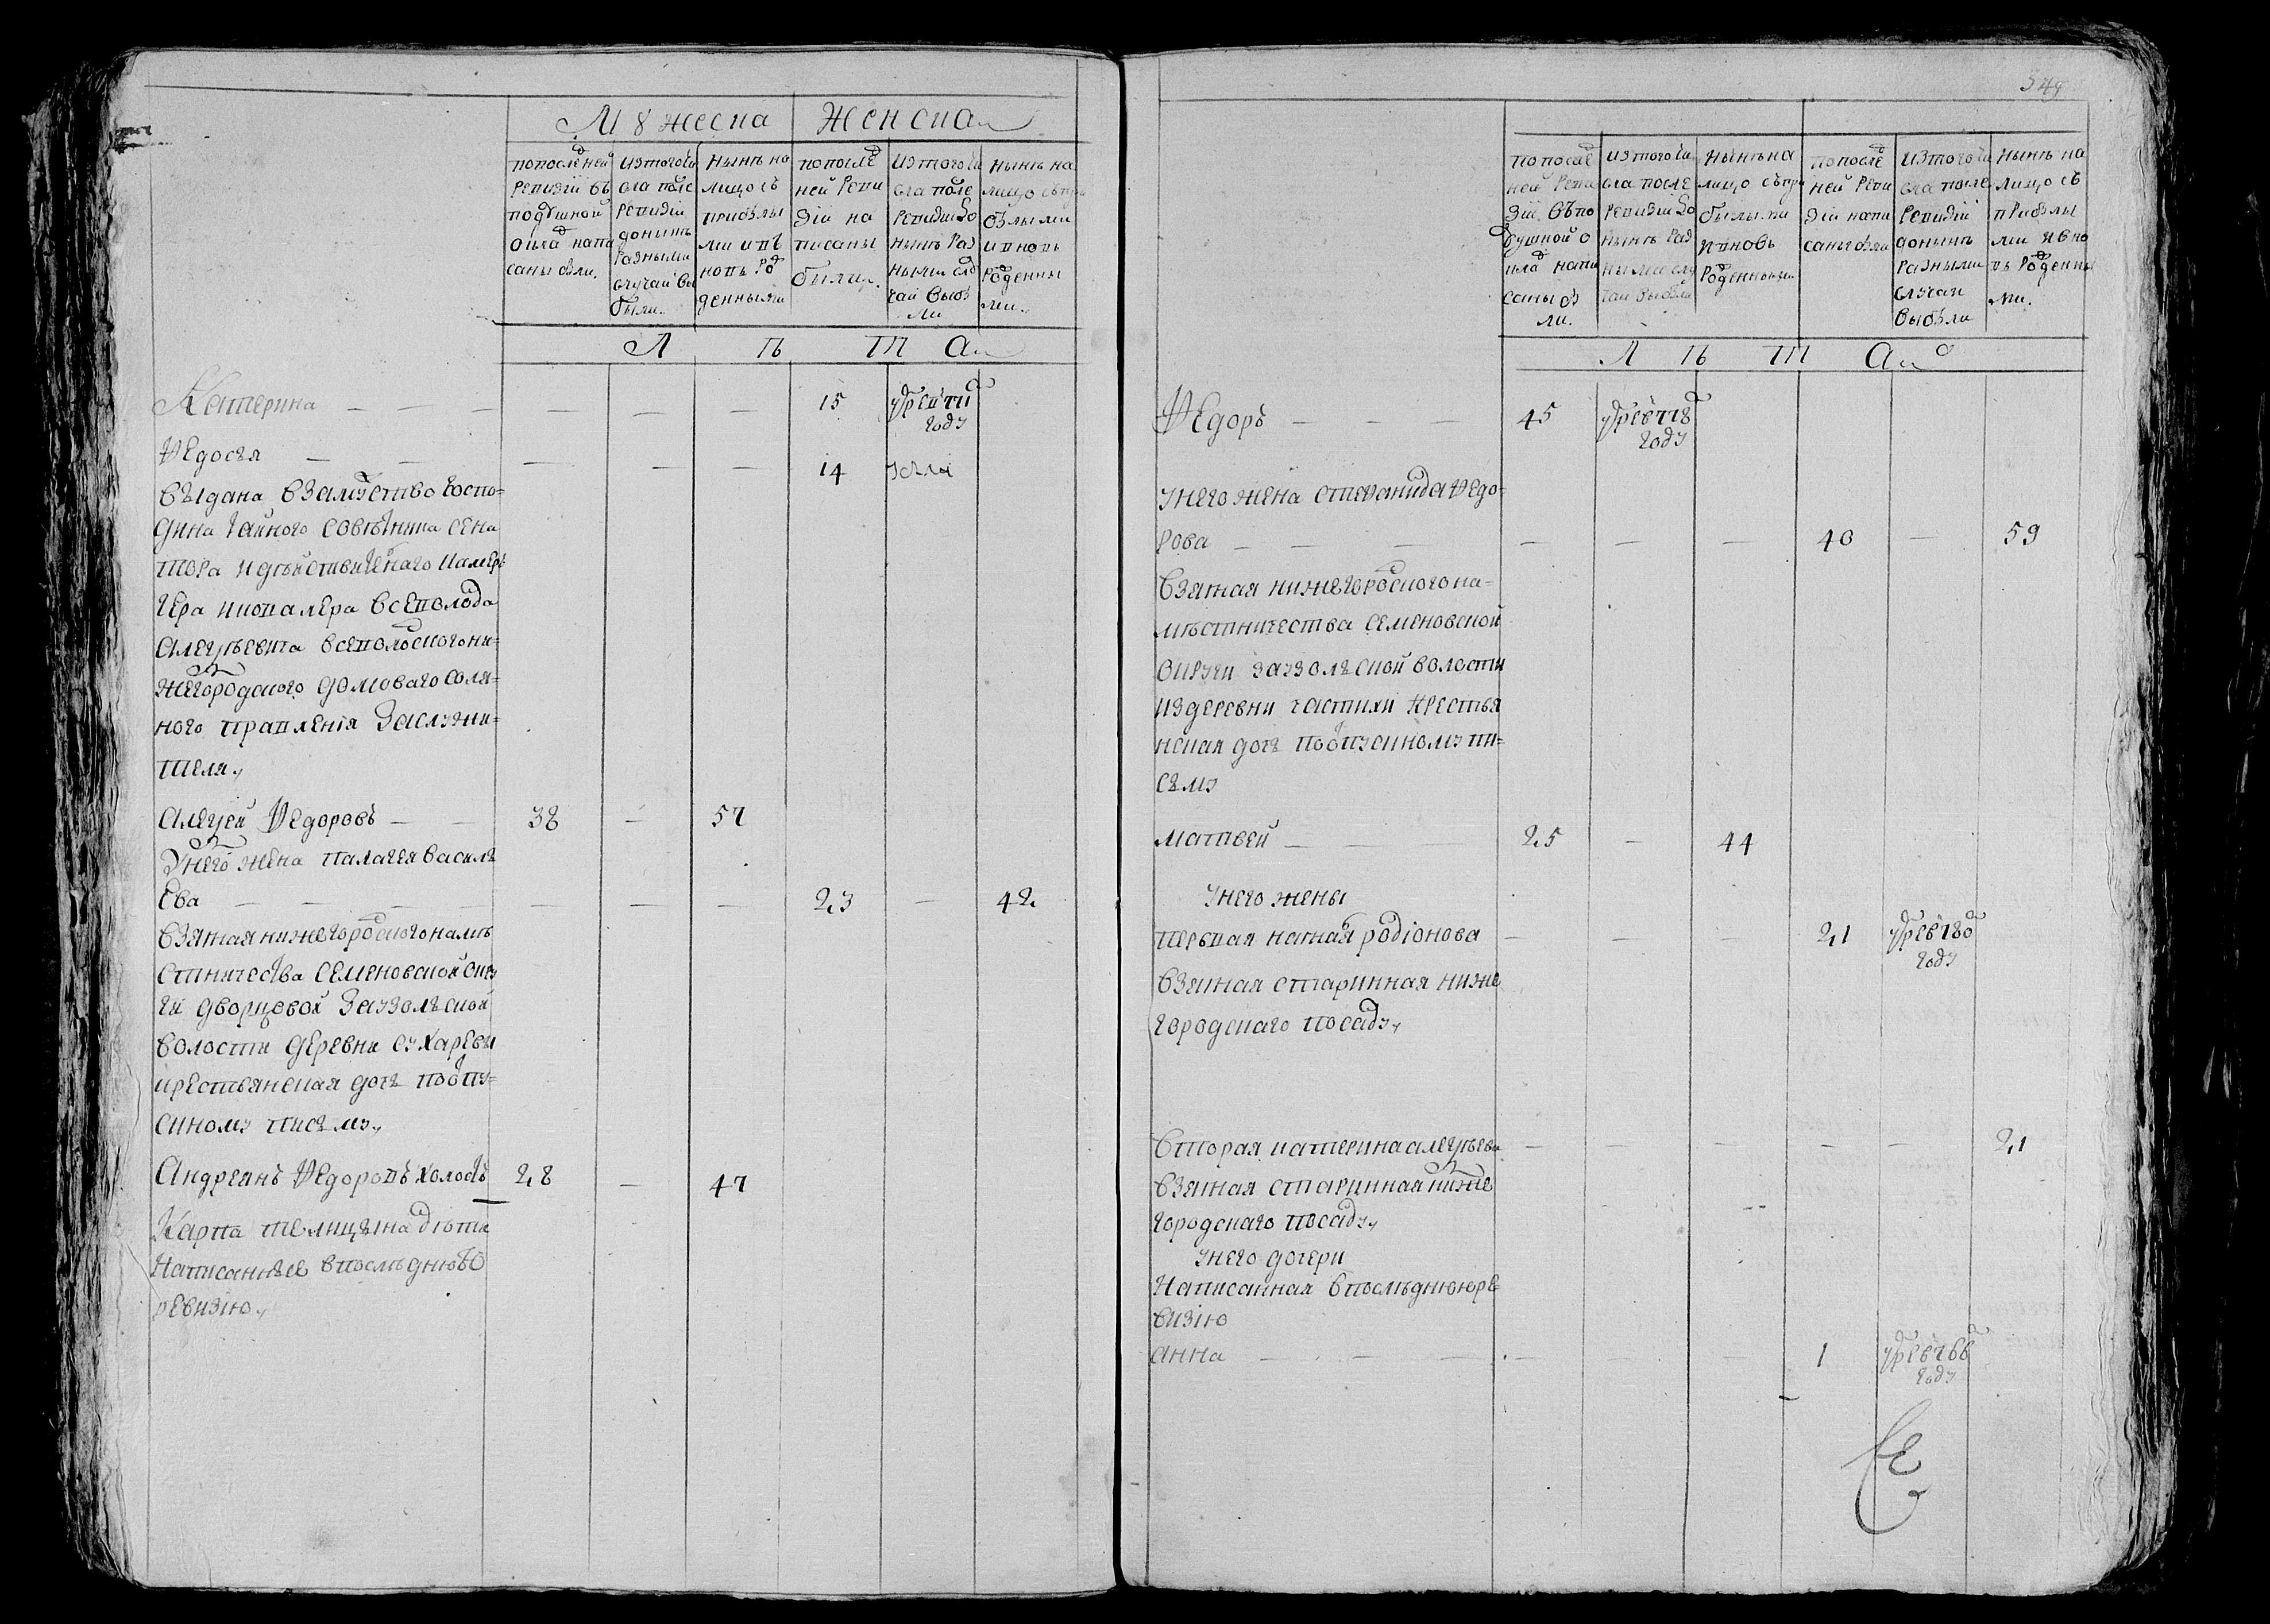 Мꙋжеска Женска
попоследней ревизіи въ подꙋшной окладъ написаны были.
изтого числа после ревизіи доныне разными случаи выбыли.
ныне налицо съ прибылыми ивновь рожденными
попоследней ревизіи написаны были.
изтого числа после ревизіи доныне разными случаи выбыли
ныне налицо съ прибылыми ивновь рожденными.
Л ѣ т а
Катерина — — — — — — 15 году
Ѳедосья — — — — — 14
Выдана взамужство госпо=
дина тайного совѣтника сена
тора идѣйствителнаго камерь
гера икавалера всеволода
алеѯѣевича всеволоскогони=
жегородского домоваго соля=
ного правленія заслужи=
теля,
алеѯей Ѳедоровъ — — 38 — 57
Унего жена палагея василь
ева — — — — — — — 23 — 42
взятая нижегородскогонамѣ
стничества семеновской окру
ги дворцовой заузолской
волости деревни сухаревы
крестьянская дочь поотпу=
скному писму,
Андреянъ Ѳедоровъ холостъ 28 — 47
Карпа телицына дѣти
Написанные впослѣднюю
ревизію,
попоследней ревизіи, въподушной окладъ написаны были.
изтого числа после ревизіи доныне разными случаи выбыли
ныне налицо съприбылыми ивновь рожденными
попоследней ревизіи написаны были
изтого числа после ревизіи доныне разными случаи выбыли
ныне налицо съ прибылыми ивновь рожденными.
Л ѣ т а
Ѳедоръ — — — 45 году
унего жена степанида Ѳедо=
рова — — — — — — 40 — 59
взятая нижегородскогона=
мѣстничества семеновской
округи заузолской волости
издеревни частихи крестья
нская дочь поотпускному пи=
сьму
матвей — — — 25 — 44
унего жены
первая родіонова — — — 21 году
взятая старинная ниже
городскаго посаду,
вторая катерина алеѯѣева — — — — — 21
взятая стариннаяниже
городскаго посаду,
унего дочери
Написанная впослѣднююре=
визію
анна — — — — — 1 году